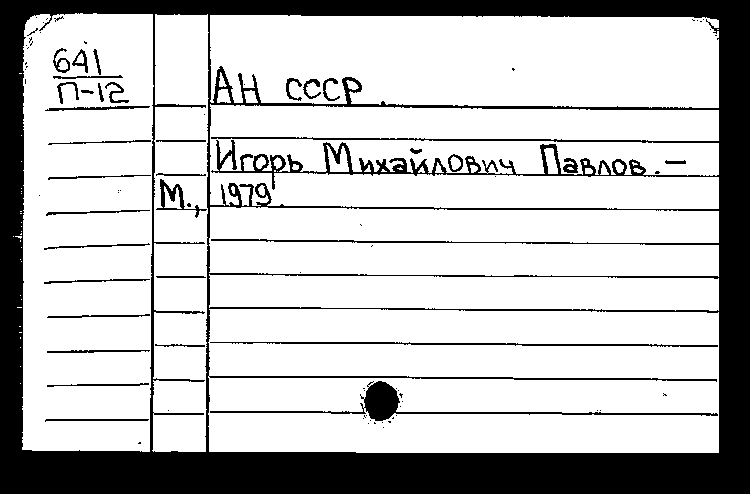 641
П-12
АН СССР.
Игорь Михайлович Павлов. —
М., 1979.